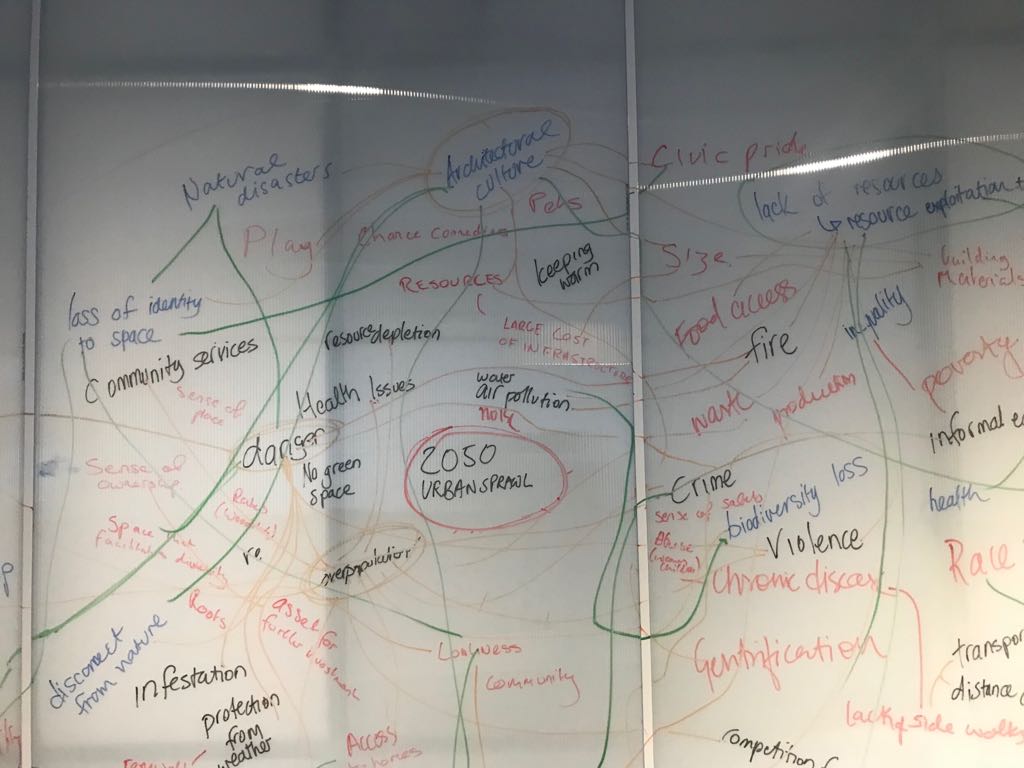 Architectural
culture
Civic pride
Natural
disasters
lack of resources
↳ resource exploitation
Pets
Play
Chance
Size
building
Materials
keeping
warm
RESOURCES
loss of identity
to space
Food access
resource depletion
LARGE COST
OF INFRASTRUCTURE
fire
Community services
poverty
Health Issues
water
air pollution
waste
production
Sense of
place
danger
informal
2050
URBAN SPRAWL
No green
space
Sense of
ownership
Crime
biodiversity loss
health
sense of safety
Violence
Space that
overpopulation
Chronic diseas
Race
Roots
asset for
further investment
disconnect
from nature
Loneliness
Gentrification
transpor
distance
infestation
Community
protection
from
weather
lack of side walks
Access
competition